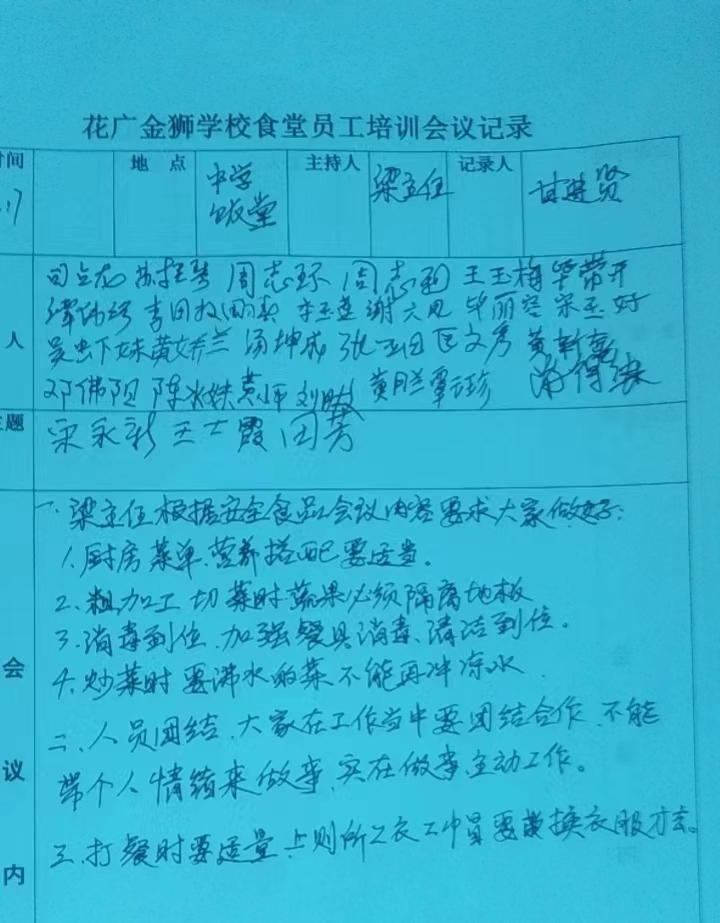 花广金狮学校食堂员工培训会议记录
时间 地点 中学饭堂 主持人 梁主任 记录人 甘进贤
.17
人
周志环 周志 王玉梅
谢六见 毕丽容 宋玉好
黄娇兰 汤坤成 张 匡文秀 黄新
邓佛 陈 刘 黄月兰 覃 珍
主题 宋永彩 王士霞 田芳
一、梁主任根据安全食品会议内容要求大家做好:
1.厨房菜单、营养搭配要适当。
2.粗加工切菜时蔬果必须隔离地板
3.消毒到位、加强餐具消毒、清洁到位。
会 4.炒菜时要沸水的菜不能再冲凉水
二、人员团结、大家在工作当中要团结合作、不能
议 带个人情绪来做事、实在做事、主动工作。
内 三、打餐时要适量、上厕所 要 换衣服才去。